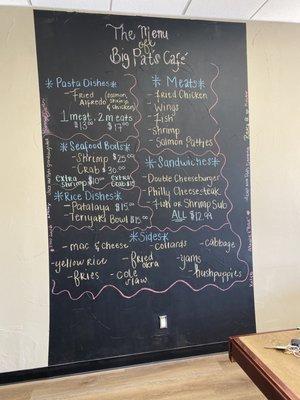 The Menu
of
Big Pats Café
*Pasta Dishes*
- Fried (salmon,
Alfredo shrimp &
chicken)
1 meat, 2 meats
$13.00 $17.00
*Seafood Boils*
- Shrimp $25.00
- Crab $30.00
extra extra
Shrimp $10.00 Crab $15
*Rice Dishes*
- Patalaya $15.00
- Teriyaki Bowl $15.00
*Meats*
- Fried Chicken
- Wings
- Fish
- Shrimp
- Salmon Patties
*Sandwiches*
- Double Cheeseburger
- Philly Cheesesteak
- Fish or Shrimp Sub
ALL $12.99
*Sides*
- mac & cheese
- Collards
- cabbage
- yellow Rice
- fried
okra
- yams
- fries
- cole
slaw
- hushpuppies